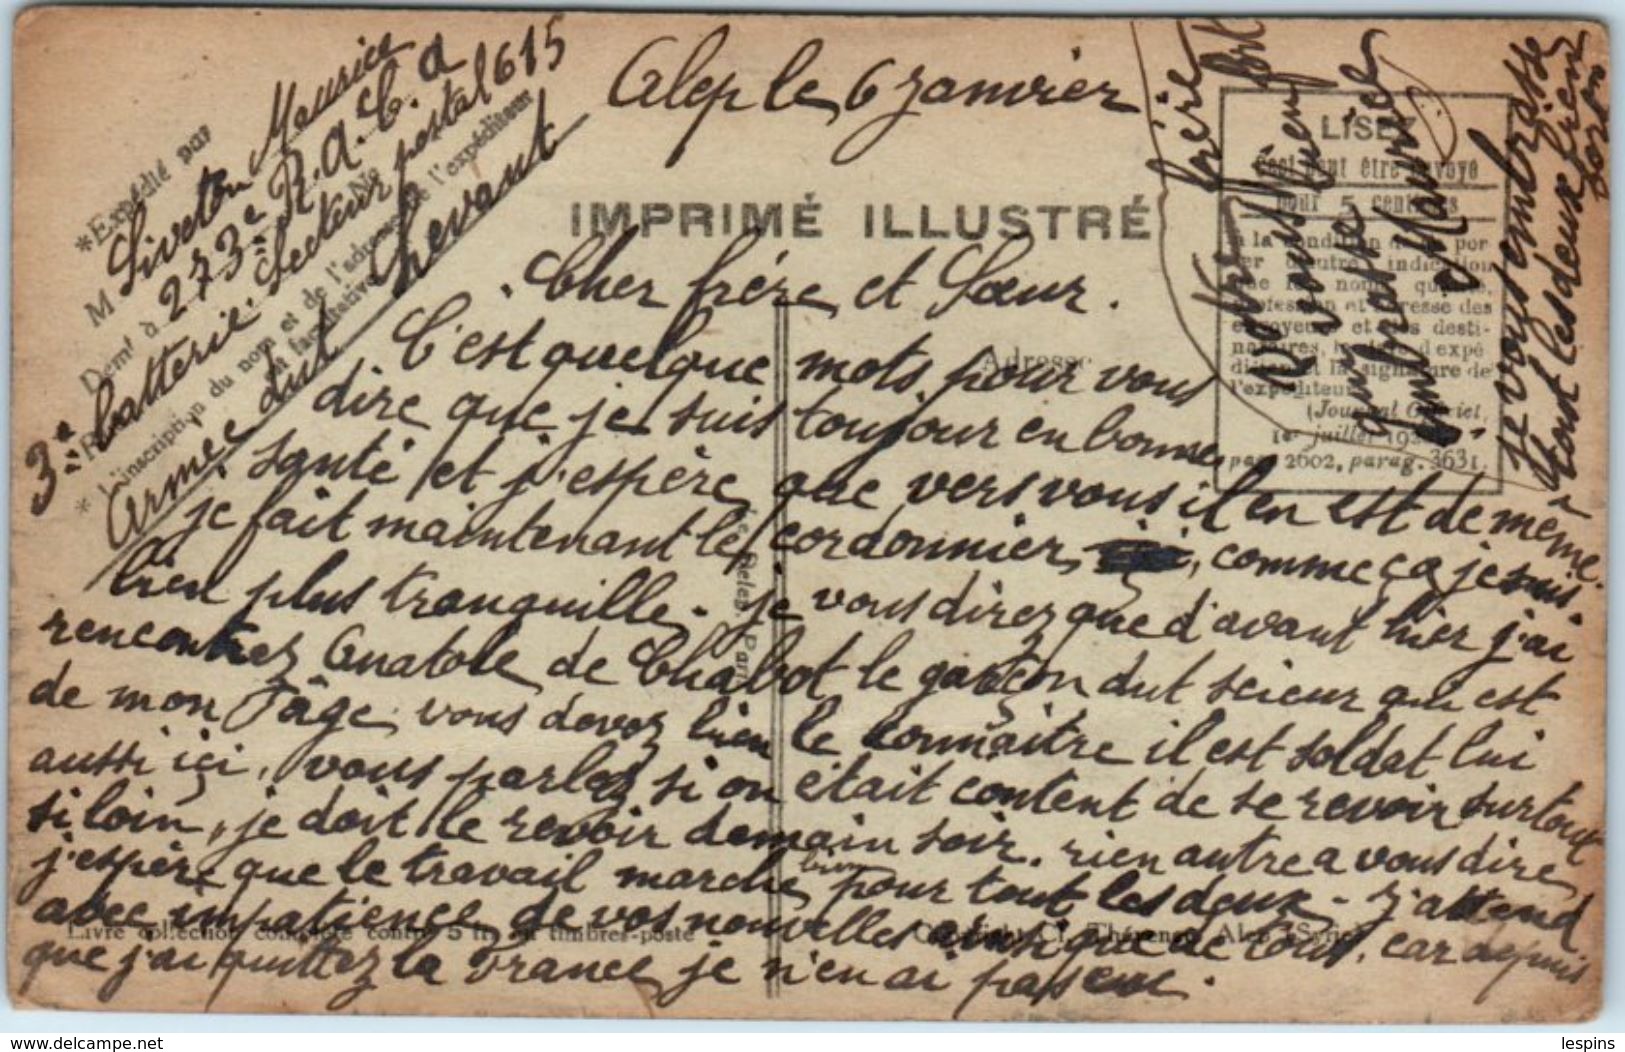 *Expédié par
M Liveton Maurice
Demt à 273e R.A.C.a
3e batterie Secteur postal 615
Armée dut Levant
* L'inscription du nom et de l'adresse de l'expéditeur
est facultative
Alep le 6 janvier
IMPRIMÉ ILLUSTRÉ
Adresse
LISEZ
Ceci peut être envoyé
pour 5 centimes
à la condition de ne por-
ter d'autre indication
que les nom, qualité,
profession et adresse des
envoyeurs et des desti-
nataires, la date d'expé
dition et la signature de
l'expéditeur
(Journal Officiel,
1er juillet 192
page 2602, parag. 3631
Cher frère et Sœur.
C'est quelque mots pour vous
dire que je suis toujour en bonne
santé et j'espère que vers vous il en est de meme.
je fait maintenant le cordonnier, comme ça je suis
bien plus tranquille. je vous direz que d'avant hier j'ai
rencontrez Anatole de Chabot le garçon dut scieur qui est
de mon l'âge. vous devez bien le connaître il est soldat lui
aussi ici, vous parlez si on était content de se revoir surtout
si loin, je doit le revoir demain soir. rien autre a vous dire
j'espère que le travail marche bien pour tout les deux. J'attend
avec impatience de vos nouvelles ainsi que de tous, car depuis
que j'ai quittez la France je n'en ai pas eue.
Livre collection complète contre 5 fr. en timbres-poste
Copyright Cl. Thévenet, Alep (Syrie)
Votre frère
qui vous
embrasse
Maurice
Je vous embrasse
tout les deux bien